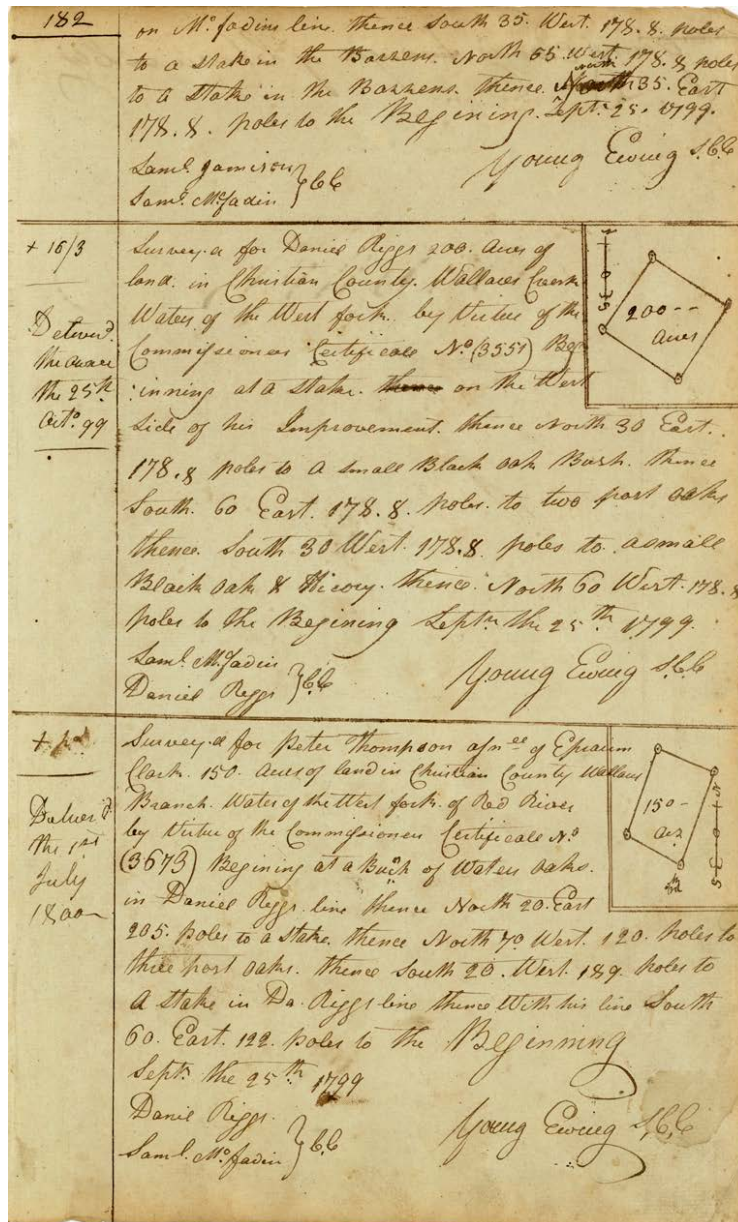 182
on Mc.fadins line. thence South 35. West. 178.8. poles
to a Stake in the Barrens. North 55. West. 178.8 poles
to a Stake in the Barrens. thence North 35. East
178.8. poles to the Begining. Sept. 25. 1799.
Saml. Jamison
Saml. McFadin } C.C
Young Ewing S.C.C
+ 16/3
Deliver'd.
the
the 25th
Octo. 99
Survey.d for Daniel Riggs 200. Acres of
land. in Christian County. Wallaces Creek
Waters of the West fork. by Virtue of the
Commissioners Certificate No. (3551) Beg
inning at a Stake. on the West
Side of his Improvement. thence North 30 East.
178.8 poles to a small Black oak Bush. thence
South. 60 East. 178.8. poles. to two post oaks
thence. South 30 West. 178.8 poles to asmall
Black oak & Hicory. thence. North 60 West. 178.8
poles to the Begining Septr. the 25th. 1799.
Saml. McFadin
Daniel Riggs } C.C
Young Ewing S.C.C
200--
Acres
+ pd
Deliver'd.
the 1st
July
1800
Survey.d for Peter Thompson asnee of Epraum
Clark. 150. Acres of land in Christian County Wallaces
Branch. Water of the West fork. of Red River
by Virtue of the Commissioners Certificate No.
(3673) Begining at a Bunch of Waters oaks.
in Daniel Riggs. line thence North 20. East
205. poles to a Stake. thence North 70 West. 120. poles to
three post oaks. thence South 20. West. 189. poles to
A Stake in Da. Riggs line thence With his line South
60. East. 122. poles to the Beginning
Sept. the 25th. 1799
Daniel Riggs.
Saml. McFadin } C.C
Young Ewing S.C.C
150-
Acs